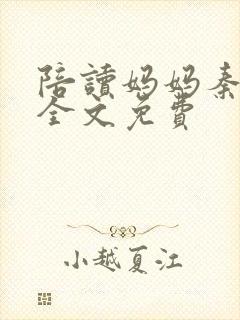 陪讀妈妈秦
全文免費
小越夏江